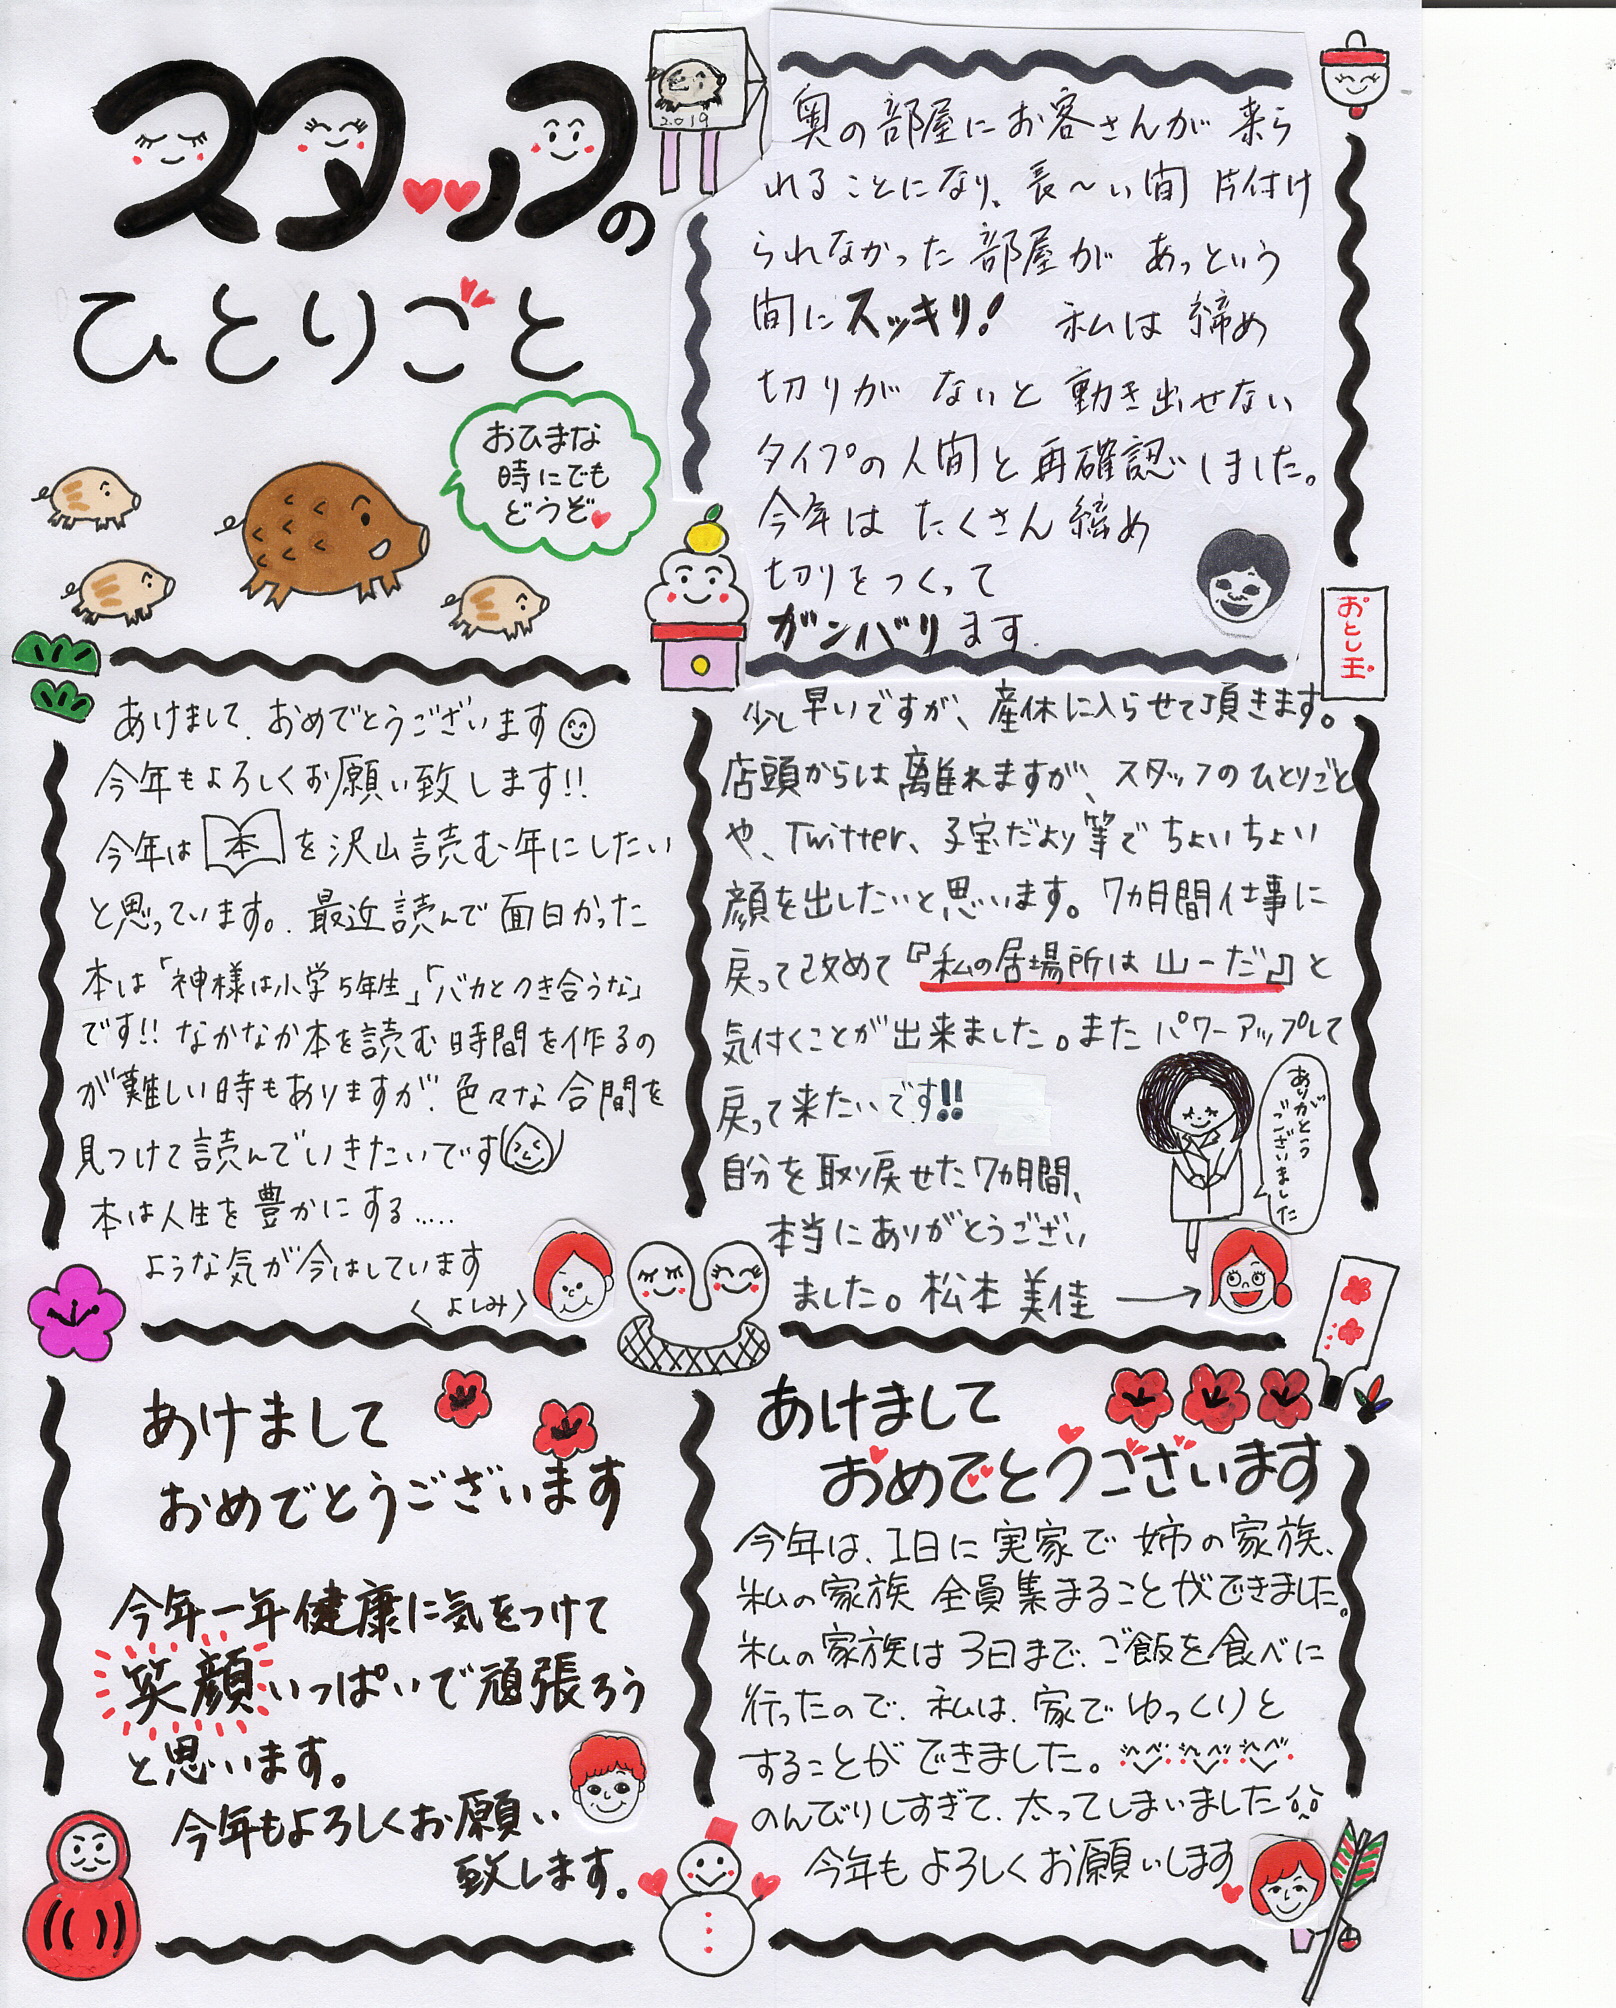 スタッフの
ひとりごと
おひまな
時にでも
どうぞ
2019
奥の部屋にお客さんが来ら
れることになり、長〜い間片付け
られなかった部屋があっという
間にスッキリ! 私は締め
切りがないと動き出せない
タイプの人間と再確認しました。
今年はたくさん締め
切りをつくって
ガンバリます.
おとし玉
あけまして、おめでとうございます
今年もよろしくお願い致します!!
今年は本を沢山読む年にしたい
と思っています。最近読んで面白かった
本は「神様は小学5年生」「バカとつき合うな」
です!! なかなか本を読む時間を作るの
が難しい時もありますが、色々な合間を
見つけて読んでいきたいです
本は人生を豊かにする.....
ような気が今はしています
〈よしみ〉
少し早いですが、産休に入らせて頂きます。
店頭からは離れますが、スタッフのひとりごと
や、Twitter、子宝だより等でちょいちょい
顔を出したいと思います。7ヵ月間仕事に
戻って改めて『私の居場所は山一だ』と
気付くことが出来ました。またパワーアップして
戻って来たいです!!
自分を取り戻せた7ヵ月間、
本当にありがとうござい
ました。松本 美佳
ありがとう
ございました
あけまして
おめでとうございます
今年一年健康に気をつけて
笑顔いっぱいで頑張ろう
と思います。
今年もよろしくお願い
致します。
あけまして
おめでとうございます
今年は、1日に実家で姉の家族、
私の家族 全員集まることができました。
私の家族は3日まで、ご飯を食べに
行ったので、私は、家でゆっくりと
することができました。
のんびりしすぎて、太ってしまいました
今年もよろしくお願いします